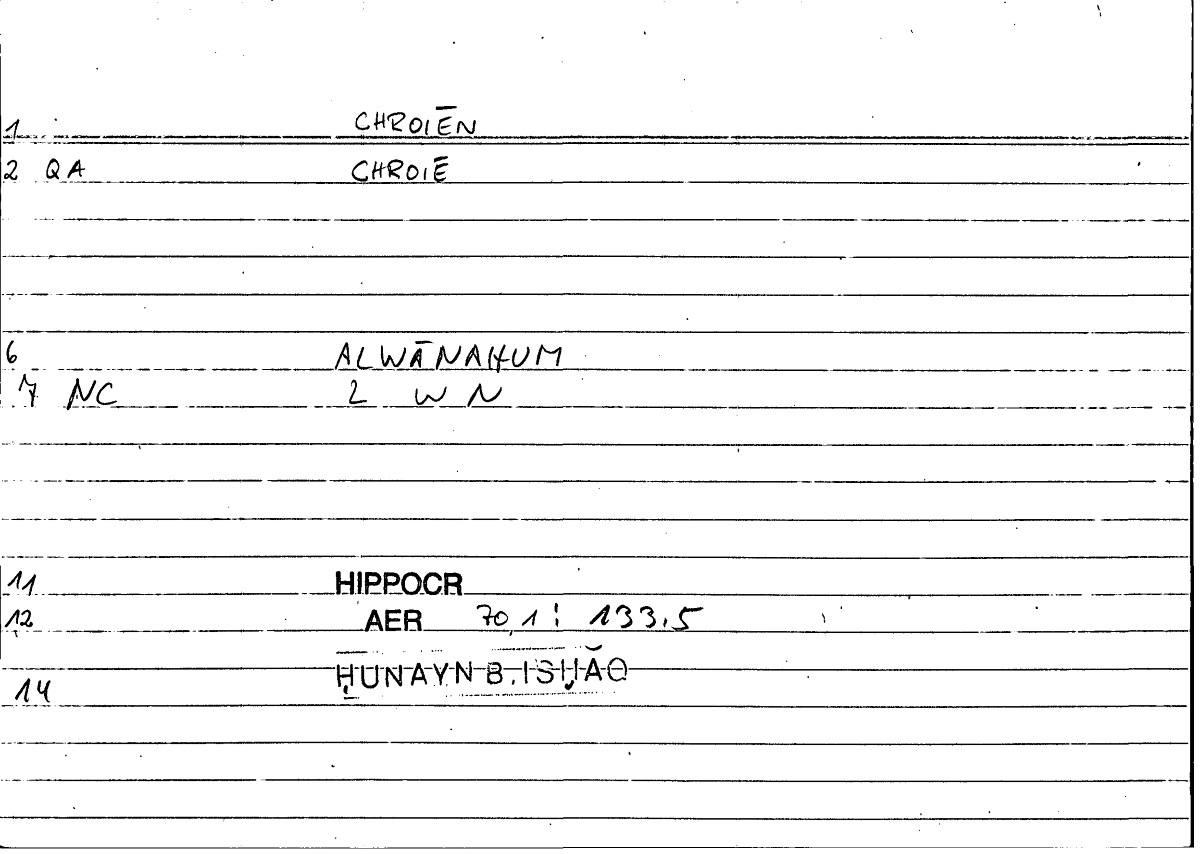 1 CHROIĒN
2 QA CHROIĒ
6 ALWĀNAHUM
7 NC 2 W N
11 HIPPOCR
12 AER 70,1 : 133.5
14 ḤUNAYN B. ISḤĀQ